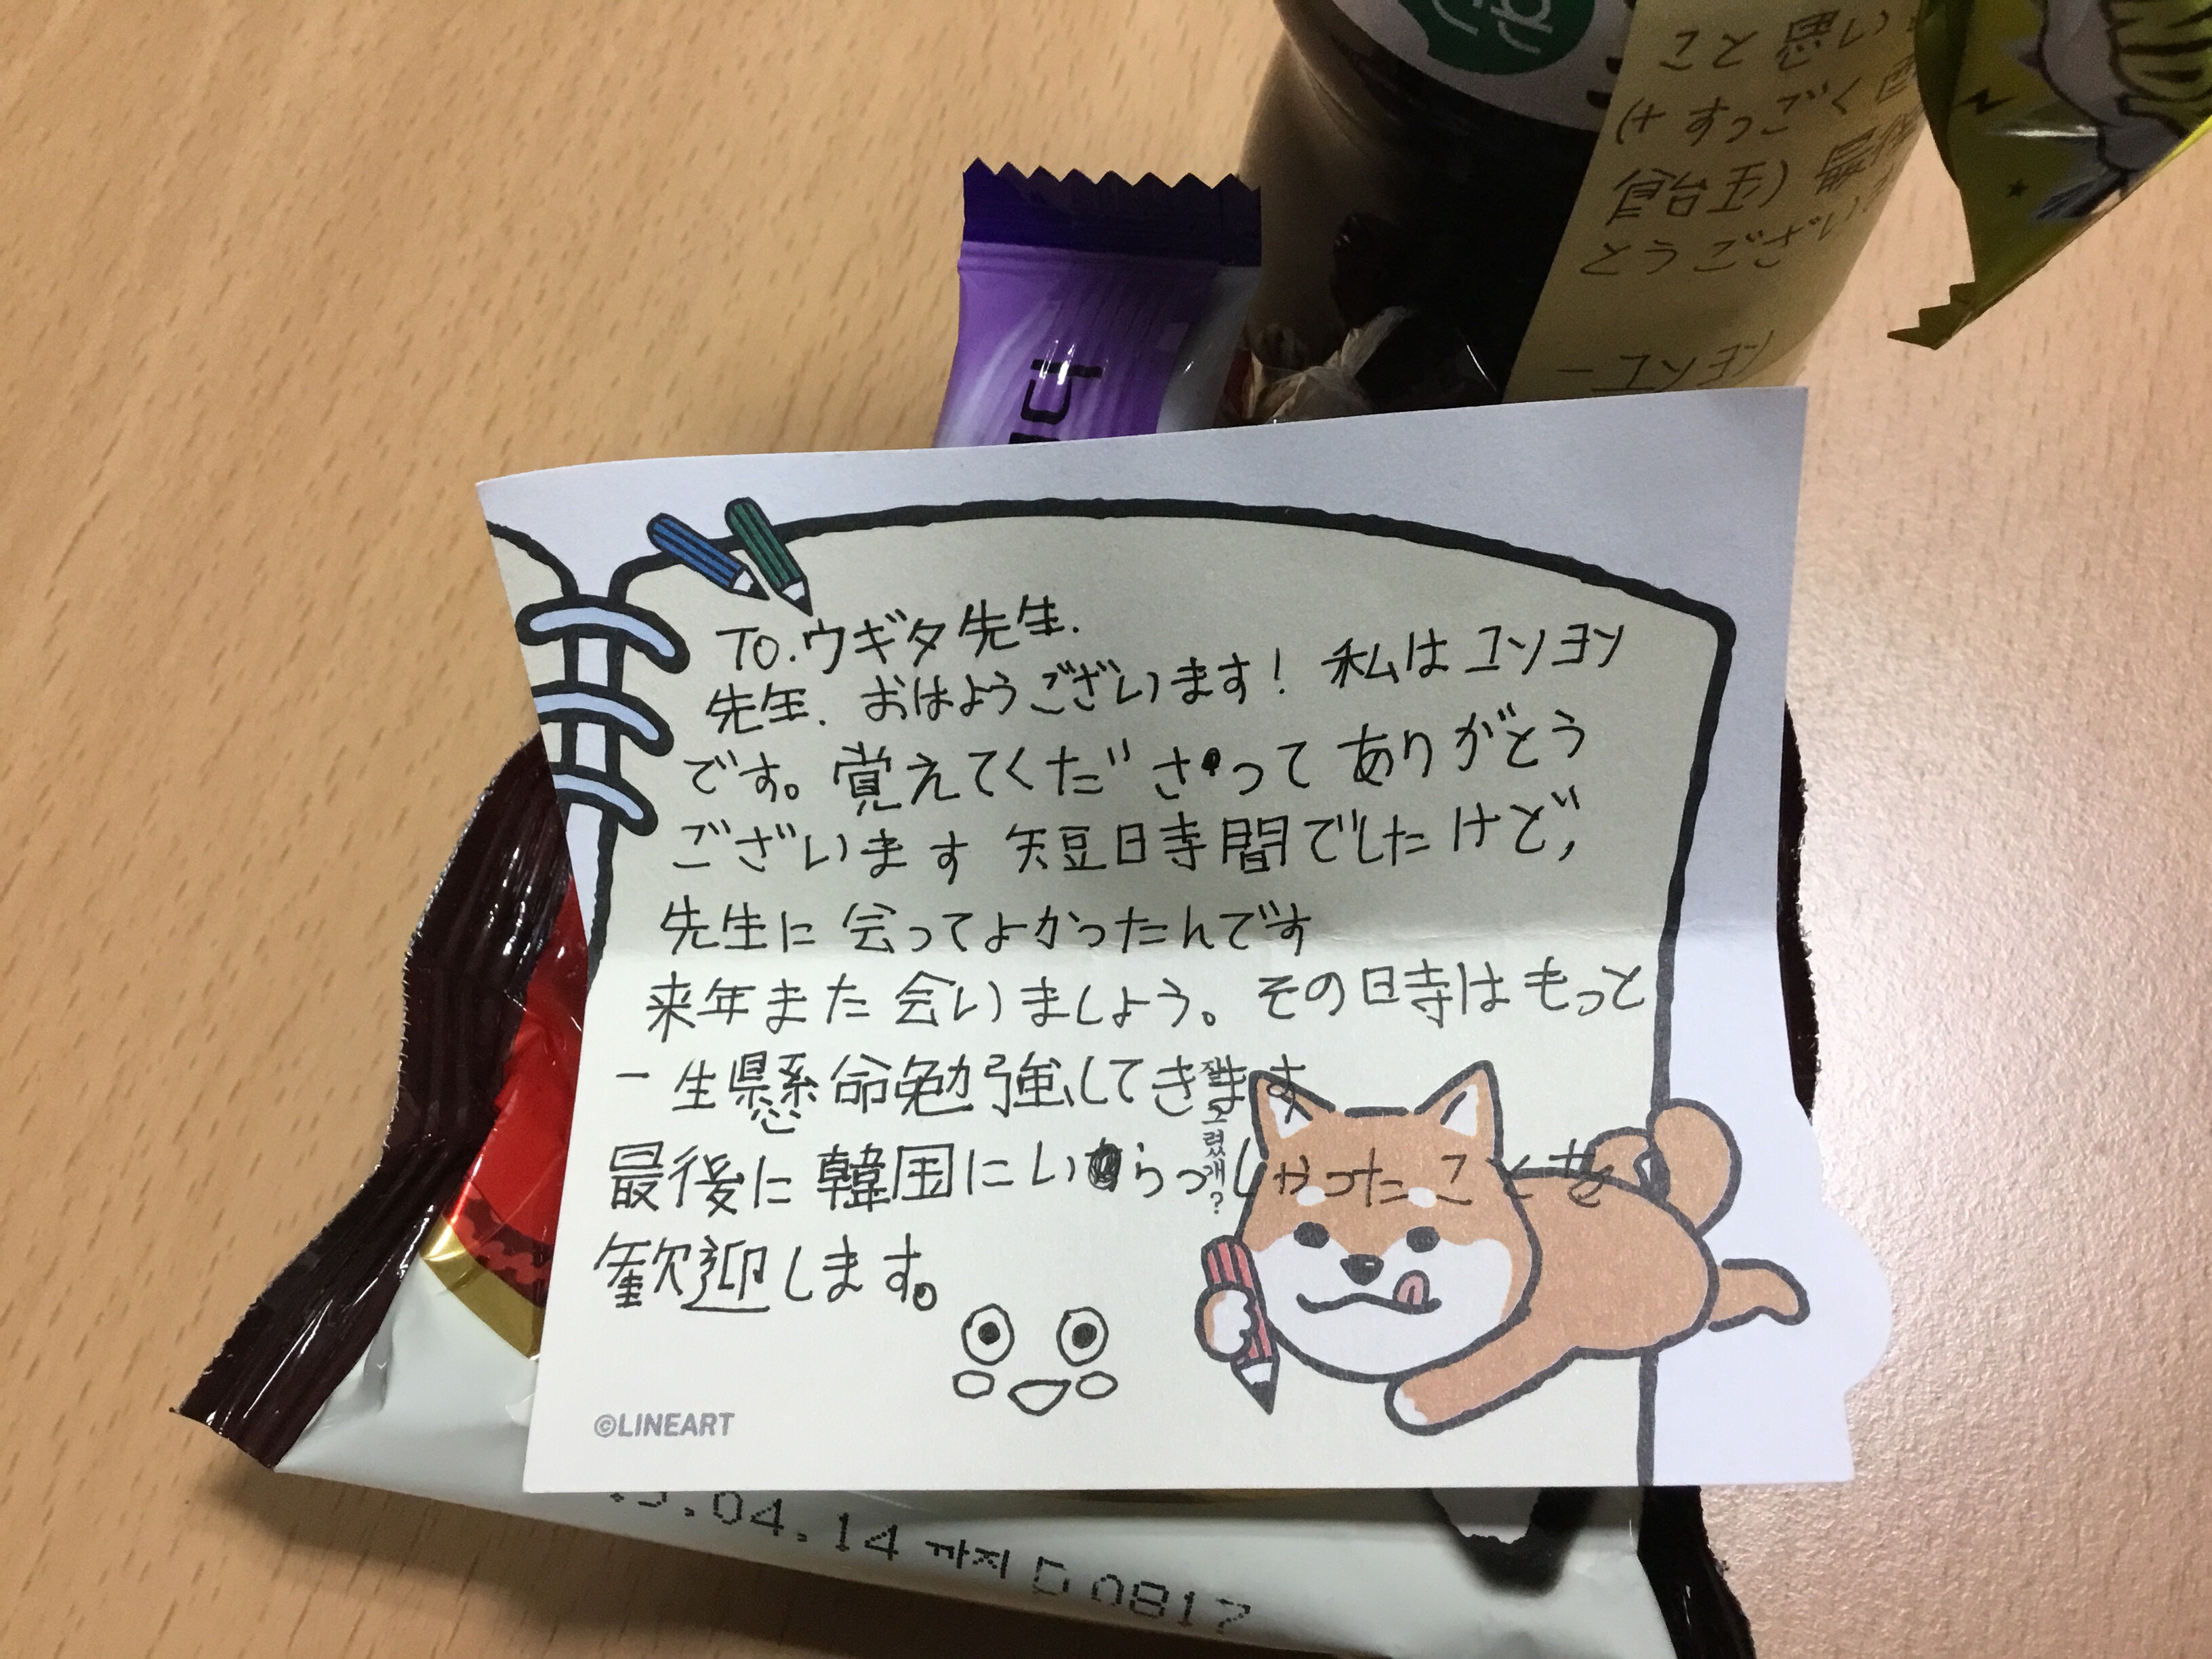 こと思い
(+すっごく
飴台玉)最
とうござい
To.ウギタ先生.
先生. おはようございます! 私はユソヨン
です。覚えてくださって ありがとう
ございます 短時間でしたけど,
先生に 会ってよかったんです
来年また 会いましょう。その時はもっと
一生懸命勉強してきます
最後に韓国にいらっしゃったことを
歓迎します。
잘
그
렸
개
?
©LINEART
.04.14 까지 D 0817